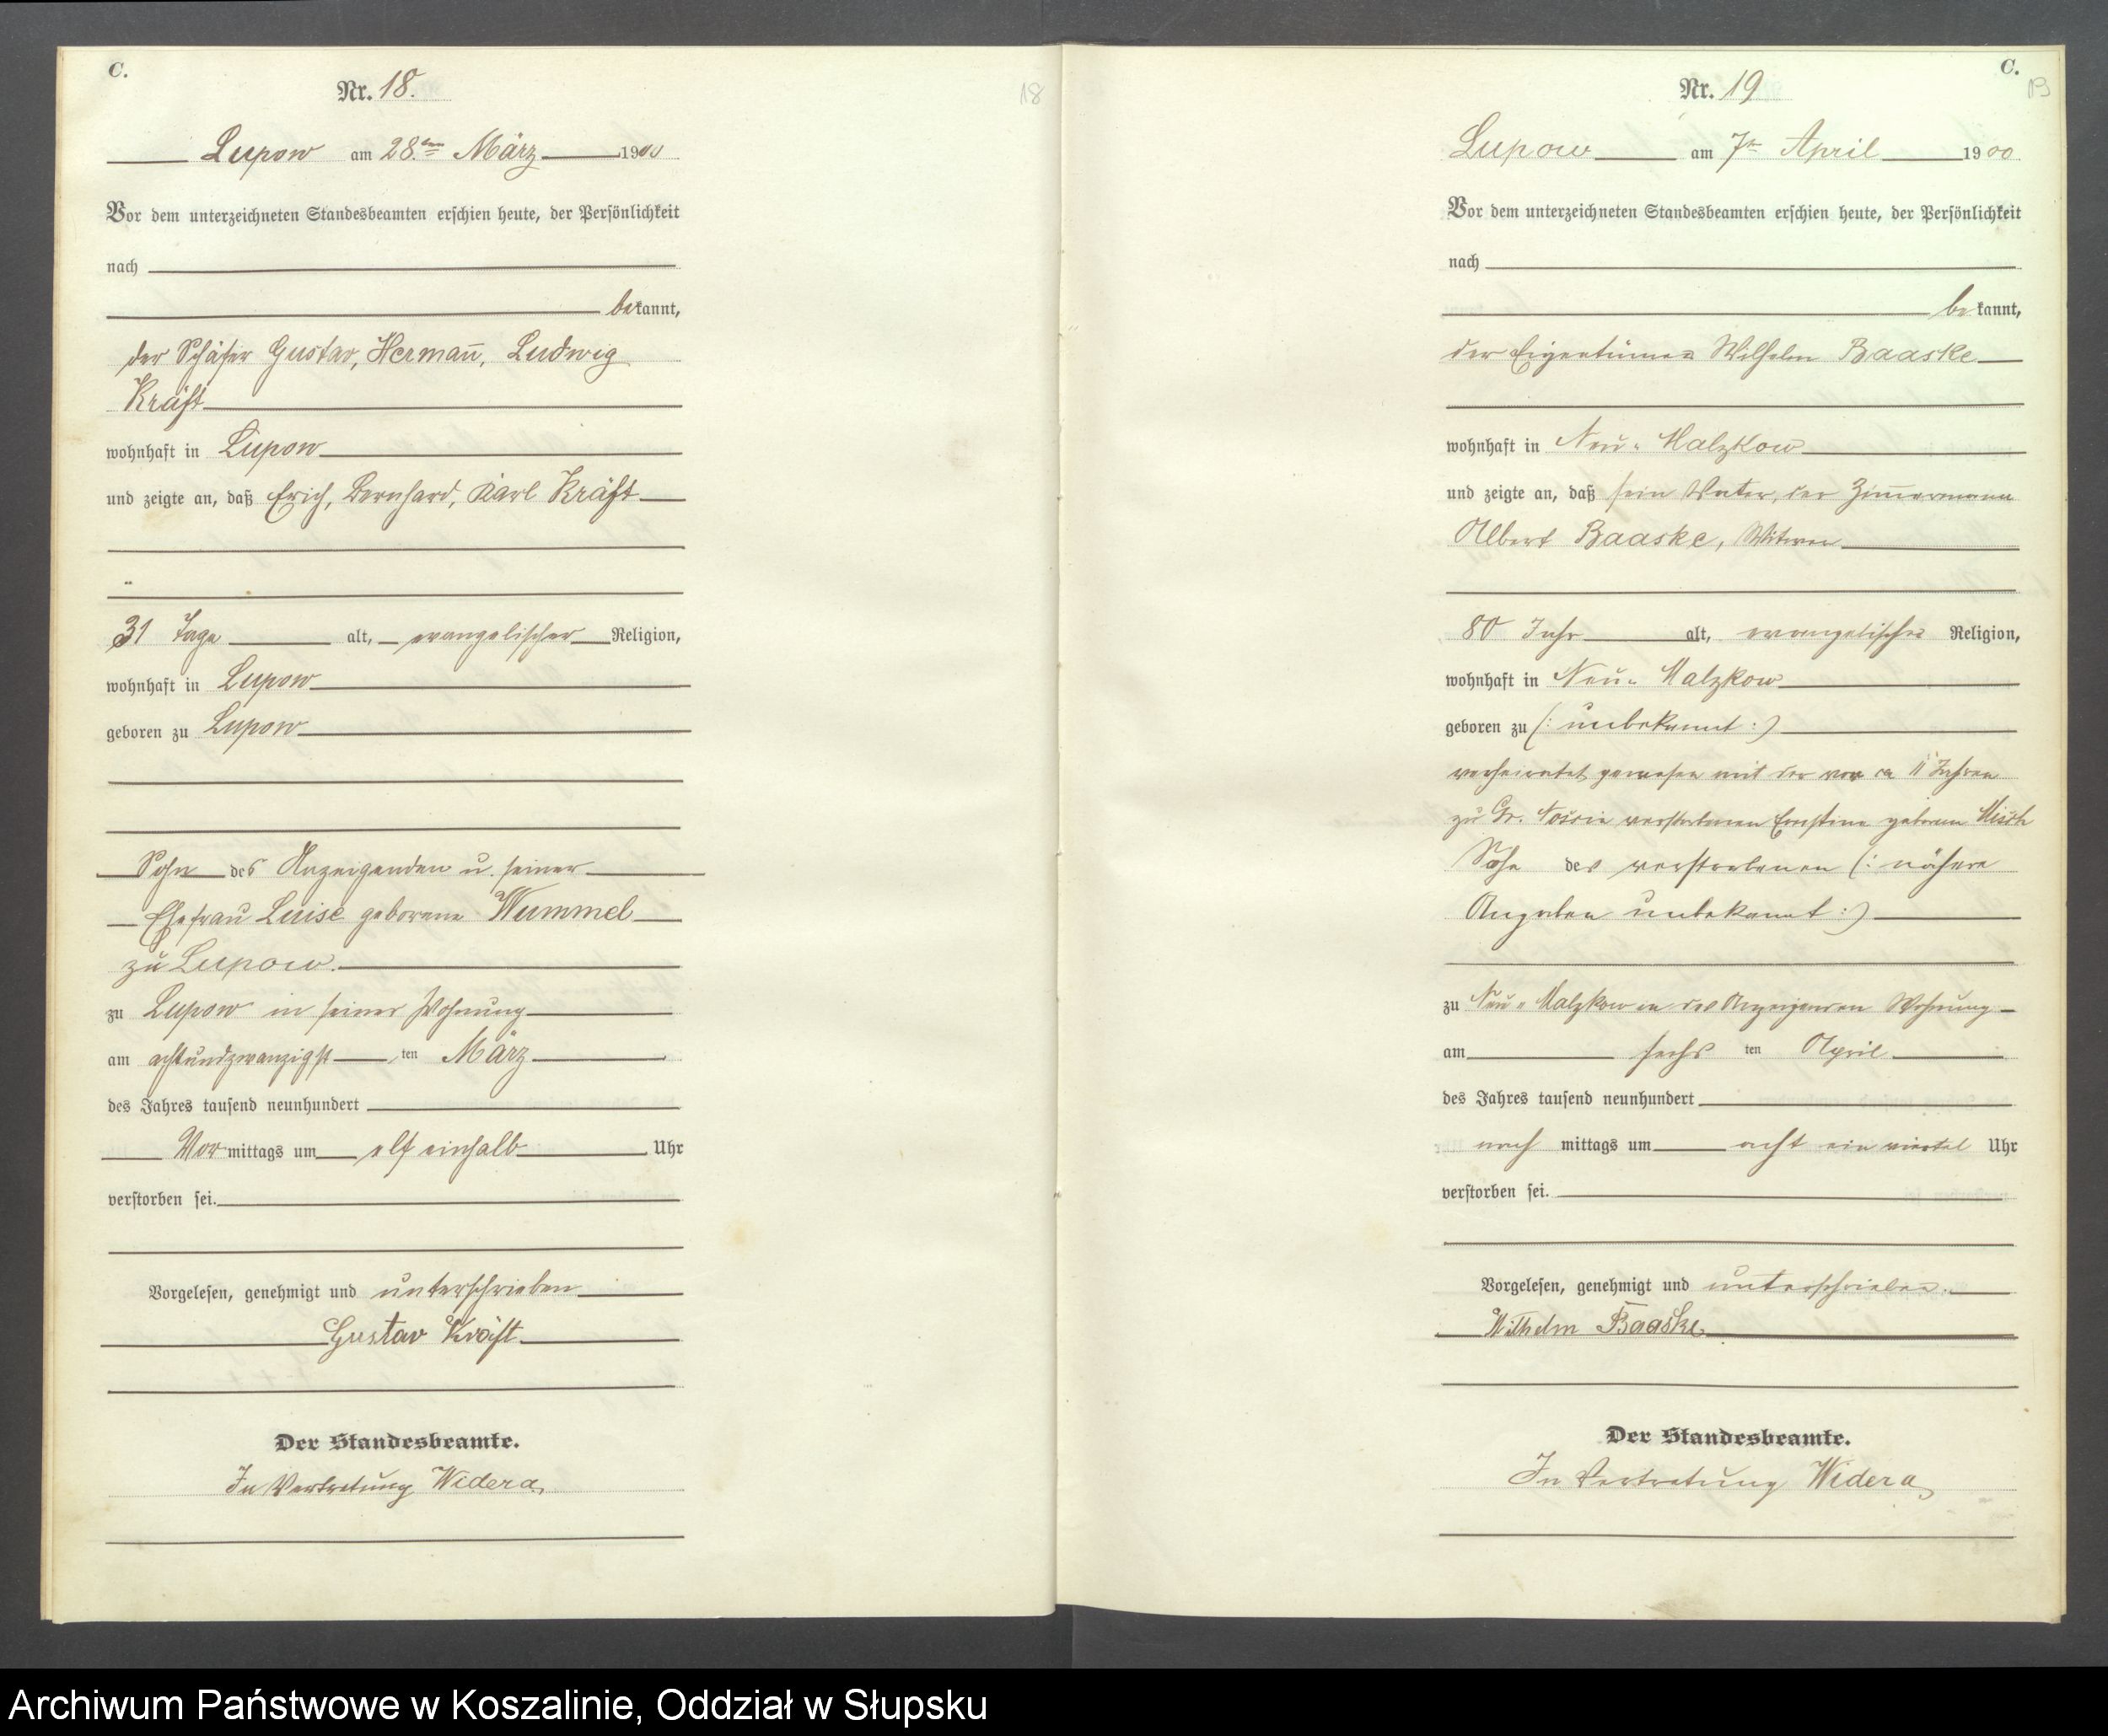 C.
Nr. 18.
18
Lupow am 28.ten März 1900
Vor dem unterzeichneten Standesbeamten erschien heute, der Persönlichkeit
nach
bekannt,
der Schäfer Gustav, Hermann, Ludwig
Kräft
wohnhaft in Lupow
und zeigte an, daß Erich, Bernhard, Karl Kräft
31 Tage alt, evangelischer Religion,
wohnhaft in Lupow
geboren zu Lupow
Sohn des Anzeigenden u. seiner
Ehefrau Luise geborene Wummel
zu Lupow.
zu Lupow in seiner Wohnung
am achtundzwanzigsten März
des Jahres tausend neunhundert
Vormittags um elf einhalb Uhr
verstorben sei.
Vorgelesen, genehmigt und unterschrieben
Gustav Kräft
Der Standesbeamte.
In Vertretung Widera
C.
Nr. 19
19
Lupow am 7ten April 1900
Vor dem unterzeichneten Standesbeamten erschien heute, der Persönlichkeit
nach
bekannt,
der Eigentümer Wilhelm Baaske
wohnhaft in Neu-Malzkow
und zeigte an, daß sein Vater, der Zimmermann
Albert Baaske, Witwer
80 Jahr alt, evangelischer Religion,
wohnhaft in Neu-Malzkow
geboren zu (: unbekannt :)
verheiratet gewesen mit der vor ca 11 Jahren
zu Gr. Nossin verstorbenen Ernstine geborenen
Sohn des verstorbenen (: nähere
Angaben unbekannt :)
zu Neu-Malzkow in des Anzeigenden Wohnung
am sechsten April
des Jahres tausend neunhundert
nachmittags um acht ein viertel Uhr
verstorben sei.
Vorgelesen, genehmigt und unterschrieben.
Wilhelm Baaske
Der Standesbeamte.
In Vertretung Widera
Archiwum Państwowe w Koszalinie, Oddział w Słupsku